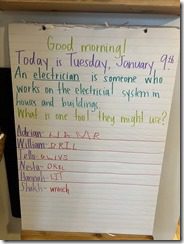 Good morning!
Today is Tuesday, January, 9th.
An electrician is someone who
works on the electrical system in
houses and buildings.
What is one tool they might use?
Adrian:
William: DRIL
Leila: GLIVS
Nesta: DREL
Hannah:
wrinch